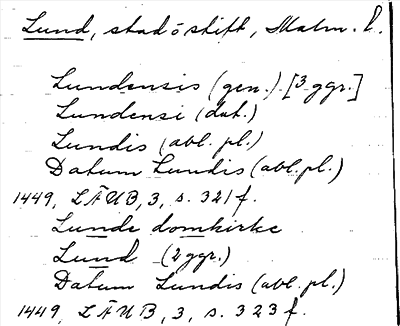 Lund, stad o stift, Malm. l.
Lundensis (gen.) [3 ggr.]
Lundensi (dat.)
Lundis (abl. pl.)
Datum Lundis (abl. pl.)
1449, LÄUB, 3, s. 321 f.
Lunde domkirke
Lund (2 ggr.)
Datum Lundis (abl. pl.)
1449, LÄUB, 3, s. 323 f.